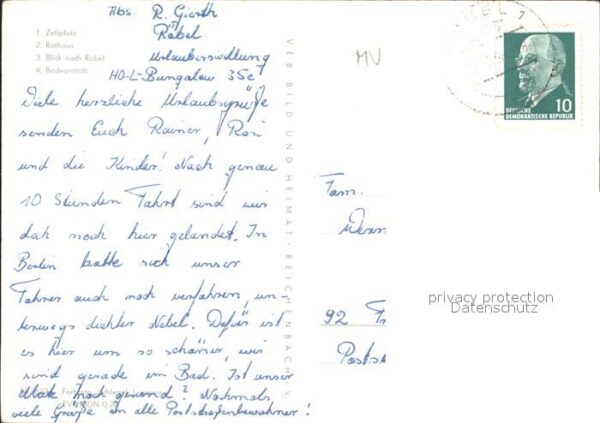 Abs. R. Gierth
Röbel
Urlaubersiedlung
HO-L-Bungalow 35c
1. Zeltplatz
2. Rathaus
3. Blick nach Röbel
4. Badeanstalt
Viele herzliche Urlaubsgrüße
senden Euch Rainer, Rosi
und die Kinder! Nach genau
10 Stunden Fahrt sind wir
doch noch hier gelandet. In
Berlin hatte sich unser
Fahrer auch noch verfahren, un-
terwegs dichter Nebel. Dafür ist
es hier um so schöner, wir
sind gerade im Bad. Ist unser
noch gesund? Nochmals
viele Grüße an alle Poststraßenbewohner!
VEB BILD UND HEIMAT · REICHENBACH I. V.
MV
DEUTSCHE
DEMOKRATISCHE REPUBLIK
10
Fam.
Wern
92 Fr
Postst
privacy protection
Datenschutz